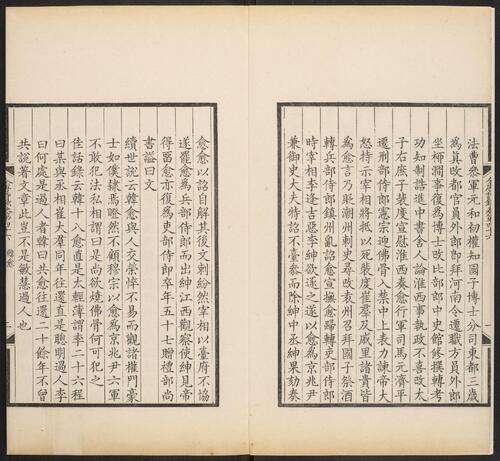 法曹參軍元和初權知國子博士分司東都三歲
為真改都官員外郎即拜河南令遷職方員外郎
坐柳澗事復為博士改比部郎中史館修撰轉考
功知制誥進中書舍人論淮西事執政不喜改太
子右庶子裴度宣慰淮西奏愈行軍司馬元濟平
遷刑部侍郎憲宗迎佛骨入禁中上表力諫帝大
怒持示宰相將抵以死裴度崔羣及戚里諸貴皆
為愈言乃貶潮州刺史尋改袁州召拜國子祭酒
轉兵部侍郎鎮州亂詔愈宣撫愈歸轉吏部侍郎
時宰相李逢吉惡李紳欲逐之遂以愈為京兆尹
兼御史大夫特詔不臺參而除紳中丞紳果劾奏
愈愈以詔自解其後文刺紛然宰相以臺府不協
遂罷愈為兵部侍郎而出紳江西觀察使紳見帝
得留愈亦復為吏部侍郎卒年五十七贈禮部尚
書諡曰文
續世說云韓愈與人交榮悴不易而觀諸權門豪
士如僕隸焉瞪然不顧穆宗以愈為京兆尹六軍
不敢犯法私相謂曰是尚欲燒佛骨何可犯之
佳話錄云韓十八愈直是太輕薄謂李二十六程
曰某與丞相崔大羣同年往還直是聰明過人李
曰何處是過人者韓曰共愈往還二十餘年不曾
共說著文章此豈不是敏慧過人也